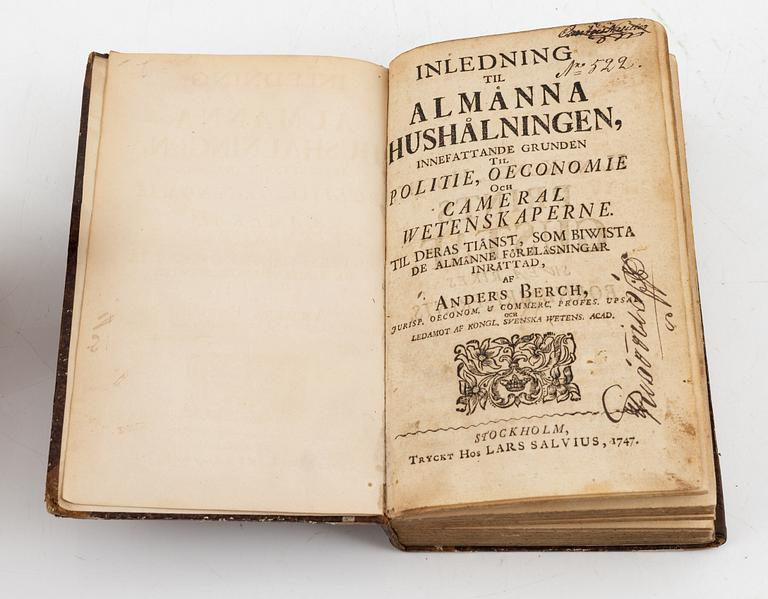 Nro 522.
INLEDNING
TIL
ALMÅNNA
HUSHÅLNINGEN,
INNEFATTANDE GRUNDEN
TIL
POLITIE, OECONOMIE
OCH
CAMERAL
WETENSKAPERNE.
TIL DERAS TIÅNST, SOM BIWISTA
DE ALMÅNNE FÖRELÅSNINGAR
INRÅTTAD,
AF
ANDERS BERCH,
JURISP. OECONOM. & COMMERC. PROFES. UPSAL.
OCH
LEDAMOT AF KONGL. SVENSKA WETENS. ACAD.
STOCKHOLM,
TRYCKT HOS LARS SALVIUS, 1747.